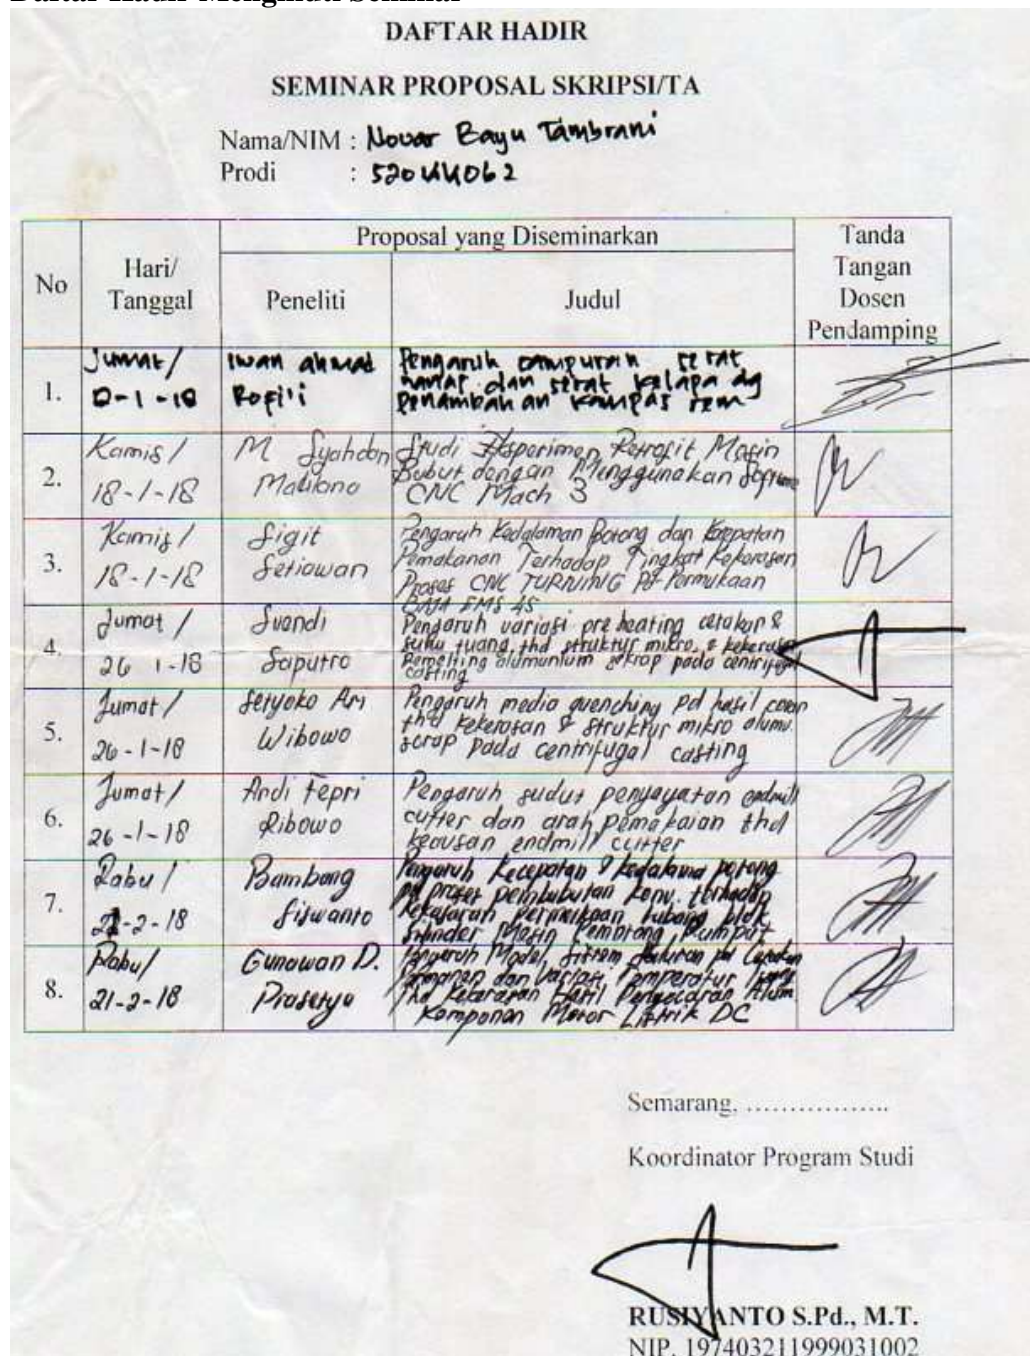 Daftar Hadir Mengikuti Seminar
DAFTAR HADIR
SEMINAR PROPOSAL SKRIPSI/TA
Nama/NIM : Novar Bayu Tambrani
Prodi : 5201414062
No
Hari/
Tanggal
Proposal yang Diseminarkan
Peneliti
Judul
Tanda
Tangan
Dosen
Pendamping
1.
Jumat/
-1-18
Iwan ahmad
Rofi'i
Pengaruh campuran serat
dan serat kelapa dg
penambahan kampas rem
2.
Kamis/
18-1-18
M Syahdan
Maulana
Studi Eksperimen Retrofit Mesin
Bubut dengan Menggunakan Software
CNC Mach 3
3.
Kamis/
18-1-18
Sigit
Setiawan
Pengaruh Kedalaman Potong dan Kecepatan
Pemakanan Terhadap Tingkat Kekerasan
Proses CNC TURNING Pd Permukaan
BAJA EMS 45
4.
Jumat /
26 1-18
Suandi
Saputro
Pengaruh variasi pre heating cetakan &
suhu tuang thd struktur mikro & kekerasan
Remelting alumunium skrap pada centrifugal
casting
5.
Jumat/
26-1-18
Setyoko Ari
Wibowo
Pengaruh media quenching pd hasil coran
thd kekerasan & struktur mikro alumu.
scrap pada centrifugal casting
6.
Jumat/
26-1-18
Andi Fepri
Ribowo
Pengaruh sudut penyayatan endmill
cutter dan arah pemakaian thd
keausan endmill cutter
7.
Rabu/
21-2-18
Bambang
Siswanto
Pengaruh Kecepatan & Kedalama potong
pd proses pembubutan konv. terhadap
kekasaran permukaan lubang blok
silinder Mesin Pemotong Rumput
8.
Rabu/
21-2-18
Gunawan D.
Prasetyo
Pengaruh Model Sistem Saluran pd Cetakan
Permanen dan Variasi Temperatur
thd Kekerasan Hasil Pengecoran Alum
Komponen Motor Listrik DC
Semarang, ..................
Koordinator Program Studi
RUSIYANTO S.Pd., M.T.
NIP. 197403211999031002